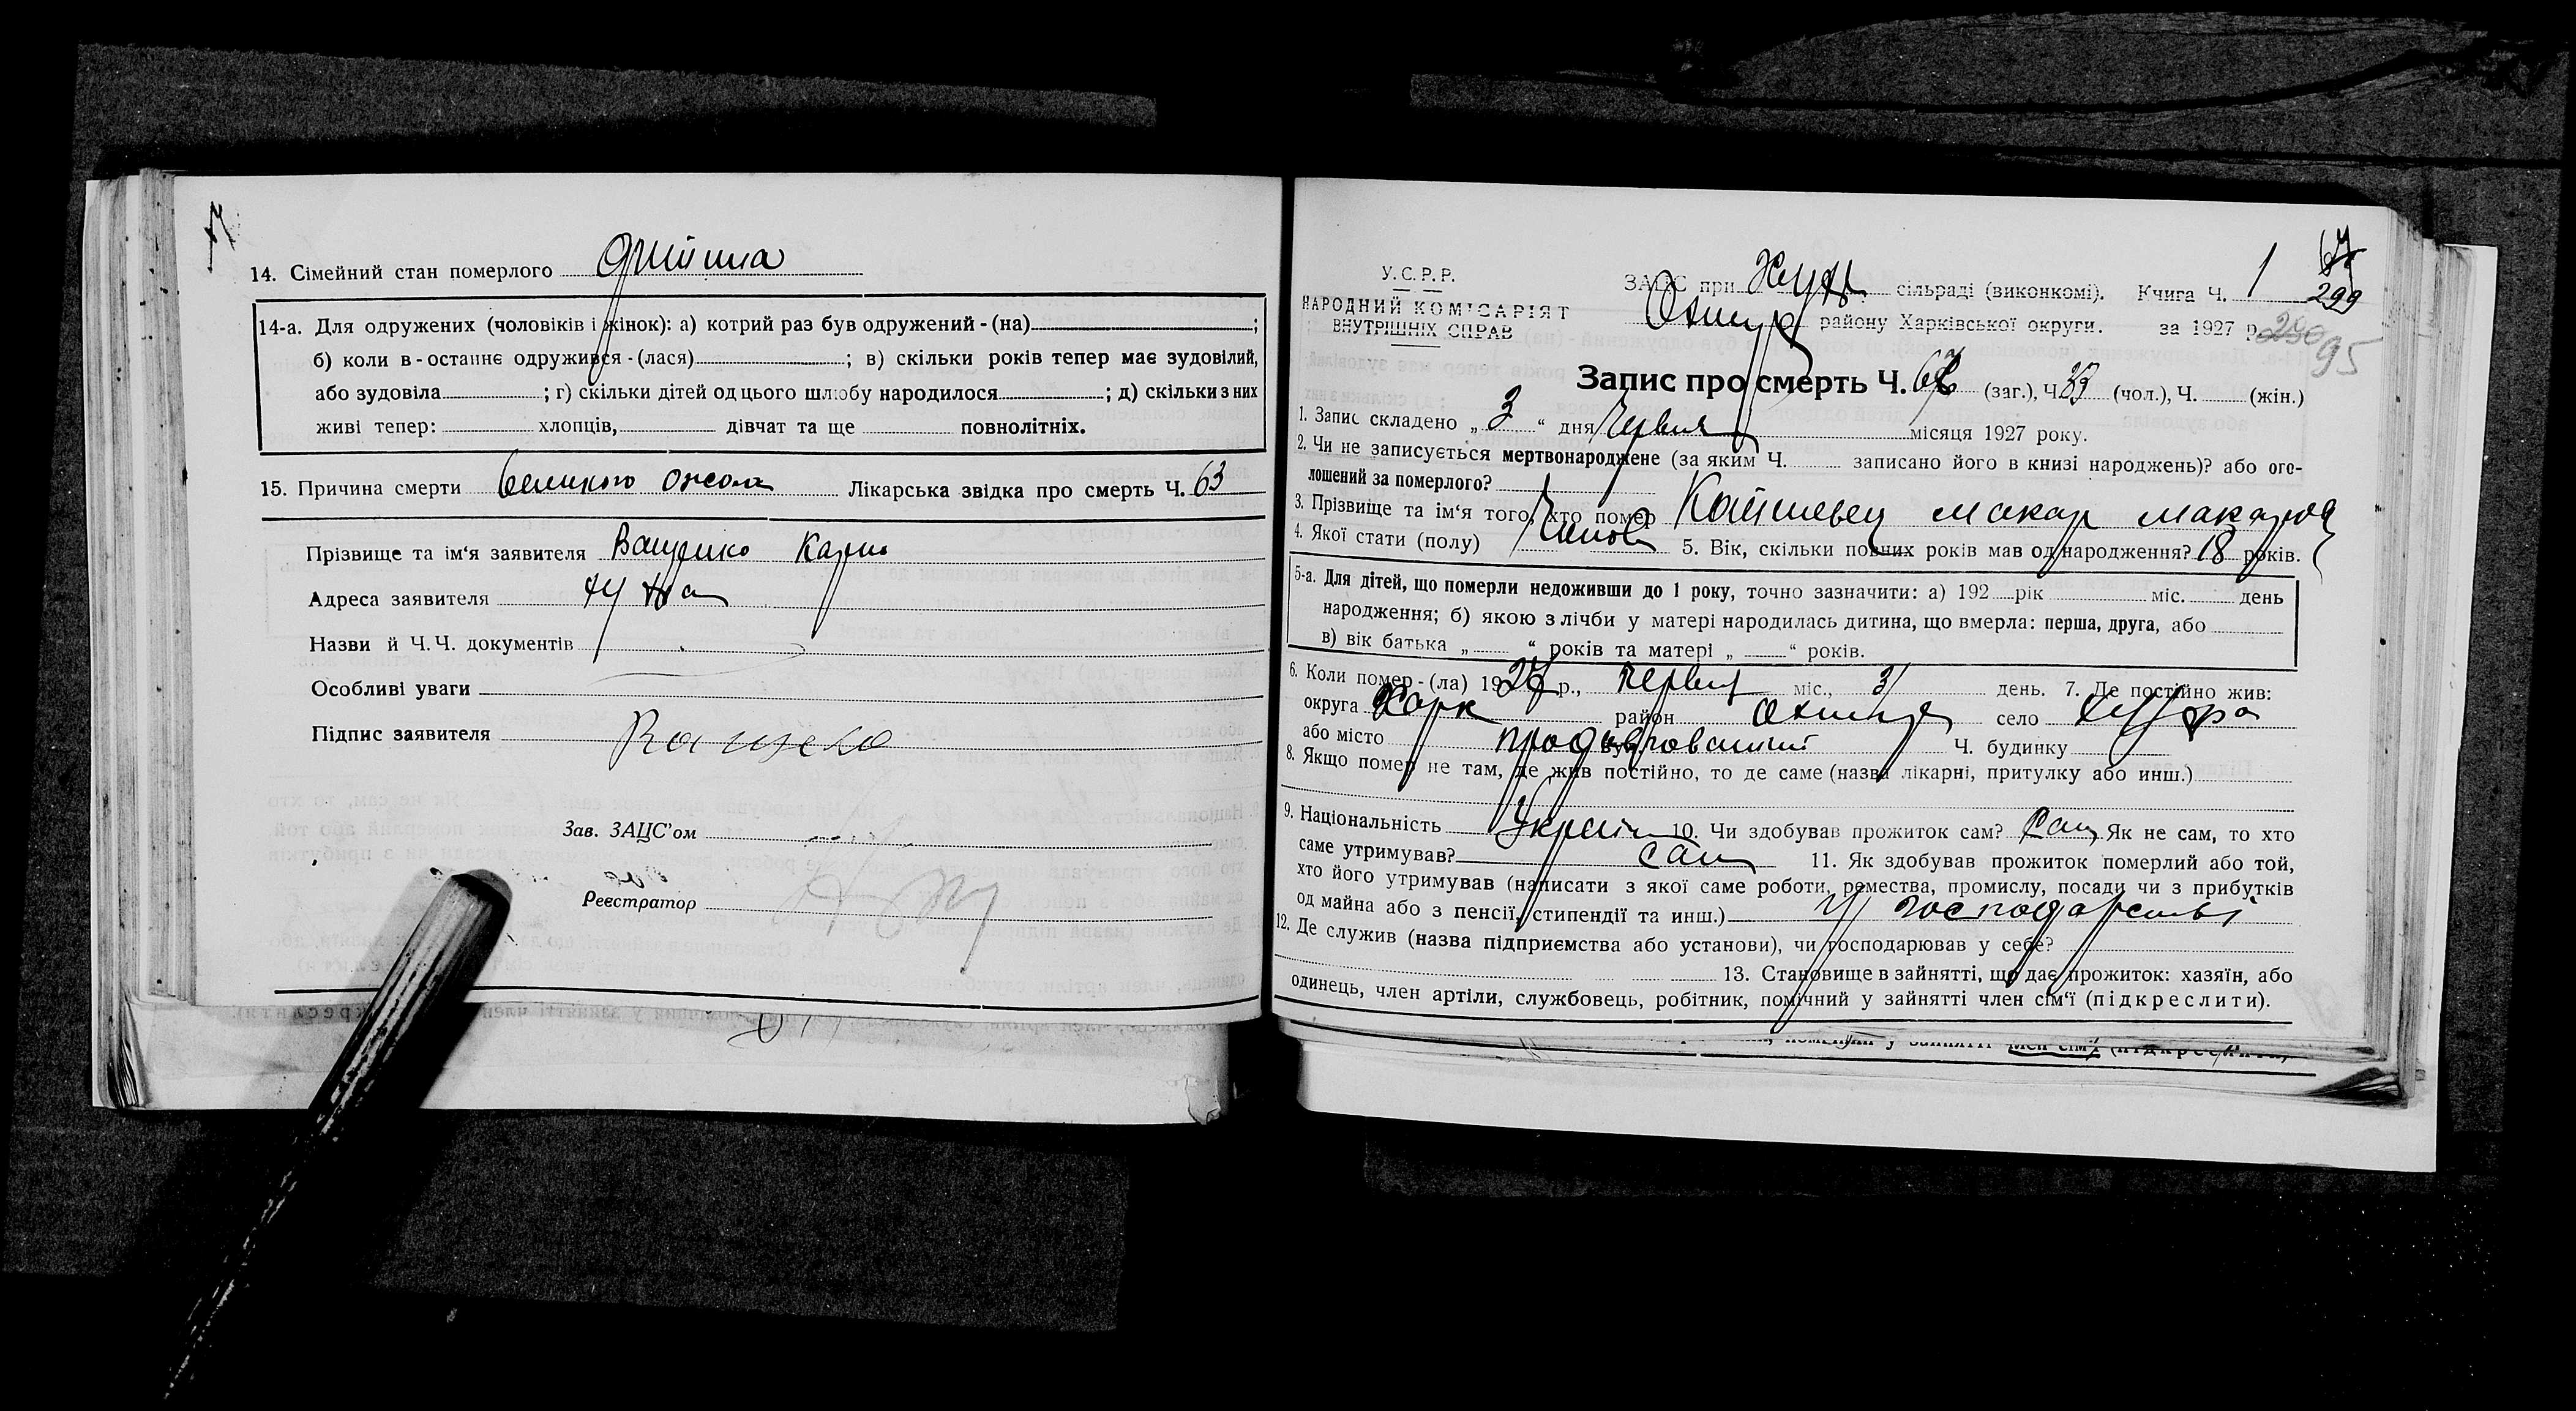 14. Сімейний стан померлого
14-а. Для одружених (чоловіків і жінок): а) котрий раз був одружений - (на) ;
б) коли в - останнє одружився - (лася) ; в) скільки років тепер має зудовілий,
або зудовіла ; г) скільки дітей од цього шлюбу народилося ; д) скільки з них
живі тепер: хлопців, дівчат та ще повнолітніх.
15. Причина смерти Лікарська звідка про смерть Ч. 63
Прізвище та ім'я заявителя Ващенко
Адреса заявителя
Назви й Ч. Ч. документів
Особливі уваги
Підпис заявителя Ващенко
Зав. ЗАЦС'ом
Реєстратор
У. С. Р. Р.
НАРОДНИЙ КОМІСАРІЯТ
ВНУТРІШНІХ СПРАВ
ЗАЦС при сільраді (виконкомі). Книга Ч. 1
299
району Харківської округи. за 1927 р. 250
95
Запис про смерть Ч. (заг.), Ч. (чол.), Ч. (жін.)
1. Запис складено „ 3 “ дня Червня місяця 1927 року.
2. Чи не записується мертвонароджене (за яким Ч. записано його в книзі народжень)? або ого-
лошений за померлого?
3. Прізвище та ім'я того, хто помер Макар
4. Якої статі (полу) 5. Вік, скільки повних років мав од народження? 18 років.
5-а. Для дітей, що померли недоживши до 1 року, точно зазначити: а) 192 рік міс. день
народження; б) якою з лічби у матері народилась дитина, що вмерла: перша, друга, або
в) вік батька „ “ років та матері „ “ років.
6. Коли помер - (ла) 1927 р., Червня міс., 3 день. 7. Де постійно жив:
округа Харк район село
або місто Ч. будинку
8. Якщо помер не там, де жив постійно, то де саме (назва лікарні, притулку або инш.)
9. Національність Україн 10. Чи здобував прожиток сам? Сам Як не сам, то хто
саме утримував? сам 11. Як здобував прожиток померлий або той,
хто його утримував (написати з якої саме роботи, ремества, промислу, посади чи з прибутків
од майна або з пенсії, стипендії та инш.) у господарстві
12. Де служив (назва підприємства або установи), чи господарював у себе?
13. Становище в зайнятті, що дає прожиток: хазяїн, або
одинець, член артіли, службовець, робітник, помічний у зайнятті член сім'ї (підкреслити).